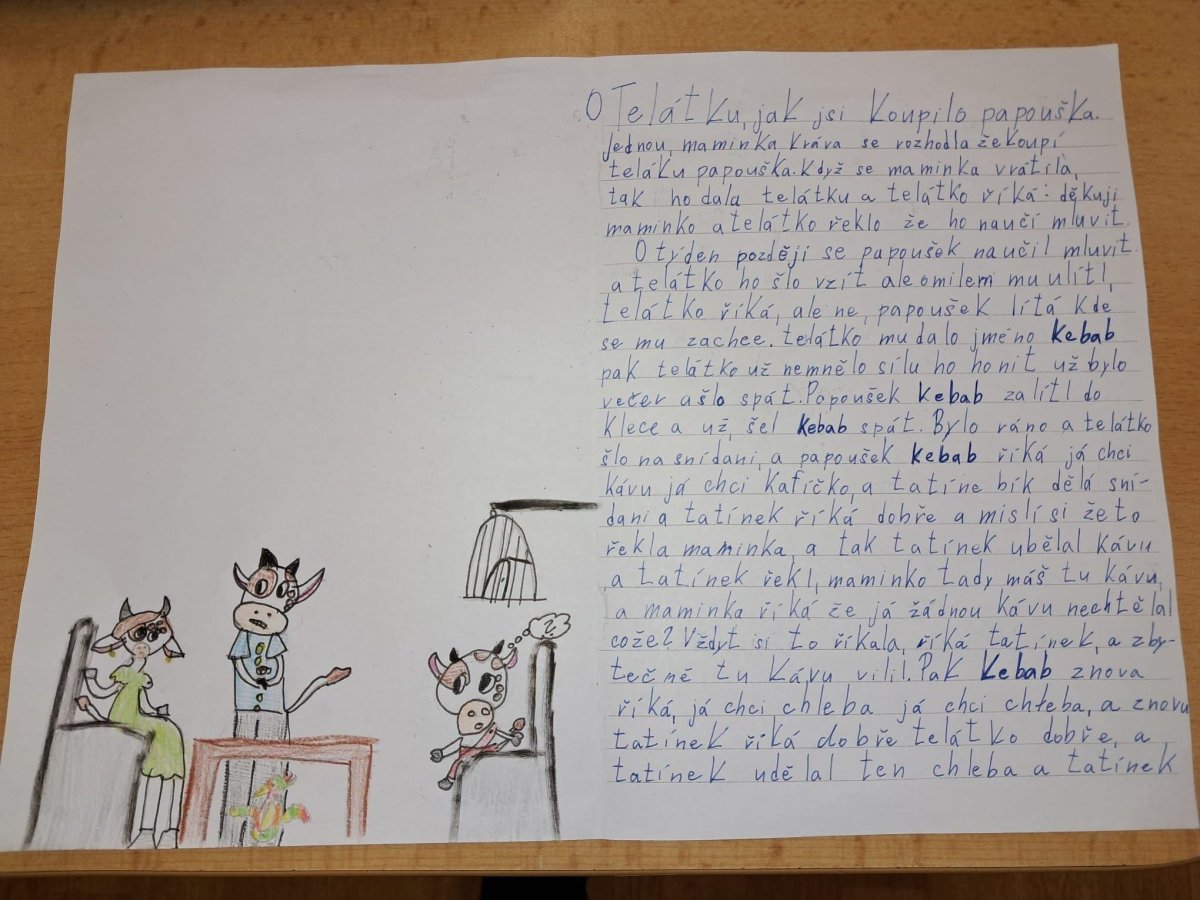 O Telátku, jak jsi koupilo papouška.
Jednou, maminka kráva se rozhodla že koupí
teláku papouška. Když se maminka vrátila,
tak ho dala telátku a telátko říká: děkuji
maminko a telátko řeklo že ho naučí mluvit.
O týden později se papoušek naučil mluvit.
a telátko ho šlo vzít ale omilem mu ulítl,
telátko říká, ale ne, papoušek lítá kde
se mu zachce. telátko mu dalo jméno kebab
pak telátko už nemnělo sílu ho honit už bylo
večer a šlo spát. Papoušek kebab zalítl do
klece a už, šel kebab spát. Bylo ráno a telátko
šlo na snídani, a papoušek kebab říká já chci
kávu já chci kafíčko, a tatíne bík dělá sní-
dani a tatínek říká dobře a mislí si že to
řekla maminka, a tak tatínek uběla kávu
a tatínek řekl, maminko tady máš tu kávu,
a maminka říká že já žádnou kávu nechtělal
cože? Vždyt si to říkala, říká tatínek, a zby-
tečně tu kávu vilil. Pak kebab znova
říká, já chci chleba já chci chleba, a znovu
tatínek říká dobře telátko dobře, a
tatínek udělal ten chleba a tatínek
?